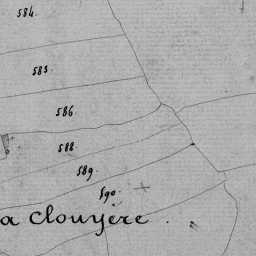 584.
583.
586.
588.
589.
590.
a Clouyère.